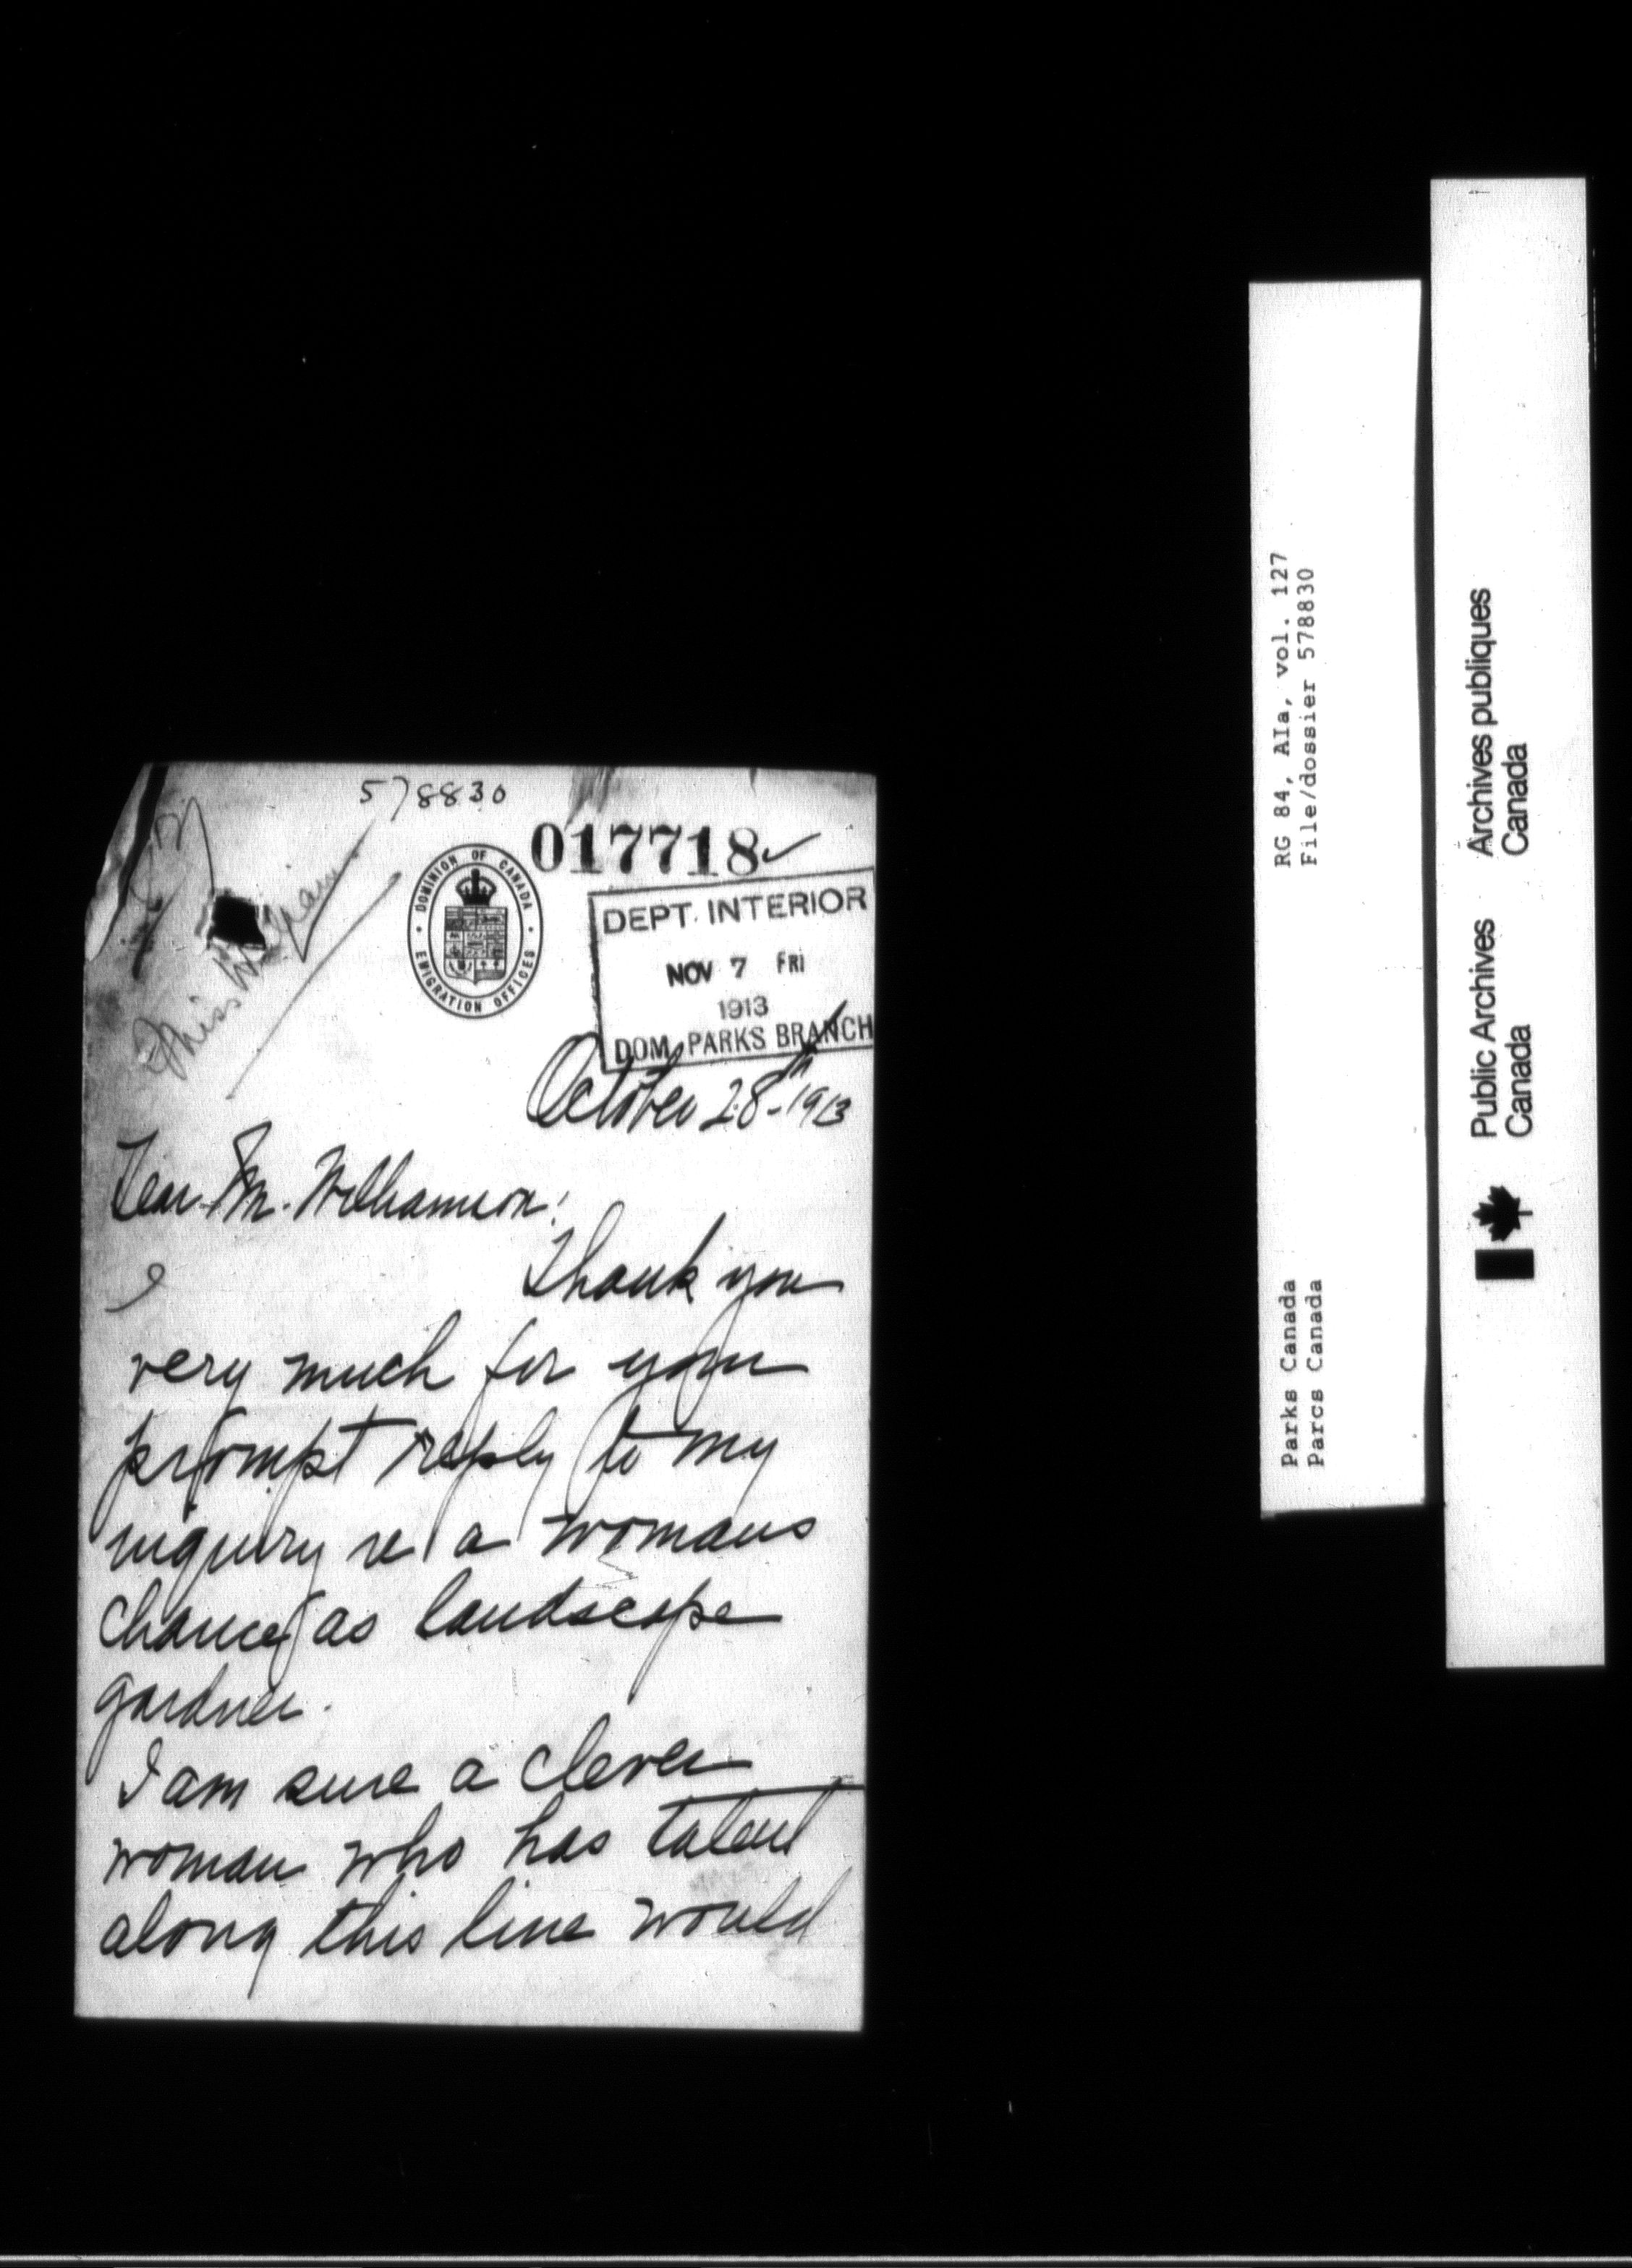 578830
017718
DOMINION OF CANADA
EMIGRATION OFFICES
DEPT. INTERIOR
NOV 7 FRI
1913
DOM. PARKS BRANCH
Miss
October 28th 1913
Dear Mr. Williamson:
Thank you
very much for your
prompt reply to my
inquiry re a womans
chance as landscape
gardner.
I am sure a clever
woman who has talent
along this line would
RG 84, AIa, vol. 127
File/dossier 578830
Parks Canada
Parcs Canada
Public Archives
Canada
Archives publiques
Canada